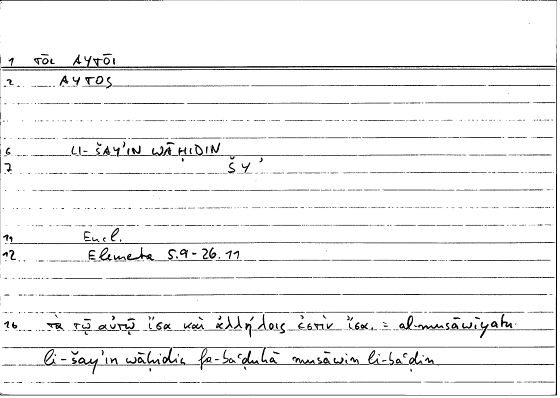 1 TŌI AYTŌI
2 AYTOS
6 LI-ŠAY'IN WĀḤIDIN
7 ŠY'
11 Eucl.
12 Elementa 5.9-26.11
16 τὰ τῷ αὐτῷ ἴσα καὶ ἀλλήλοις ἐστὶν ἴσα. = al-musāwiyatu
li-šay'in wāḥidin fa-baʿḍuhā musāwin li-baʿḍin